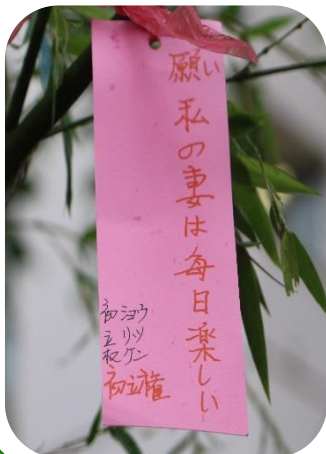 願い
私の妻は毎日楽しい
初 ショウ
立 リツ
权 ケン
初立権